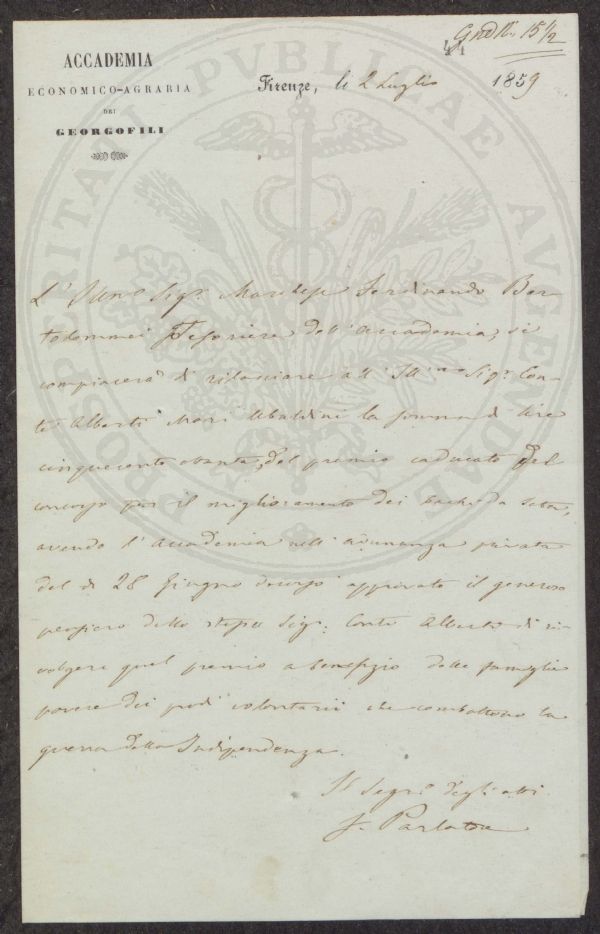 ACCADEMIA
ECONOMICO-AGRARIA
DEI
GEORGOFILI
44
15 1/2
Firenze, li 2 Luglio 1859
PROSPERITATI PVBLICAE AVGENDAE
L' Illmo Sigr. Marchese Ferdinando Bar-
tolommei Tesoriere dell' Accademia, si
compiacerà di rilasciare all' Illmo Sigr. Con-
te Alberto Mori Ubaldini la somma di lire
cinquecento ottanta, del premio caducato del
concorso per il miglioramento dei bachi da seta,
avendo l' Accademia nell' adunanza privata
del dì 28 Giugno decorso approvato il generoso
pensiero dello stesso Sigr. Conte Alberti di ri-
volgere quel premio a benefizio delle famiglie
povere dei prodi volontarii che combattono la
guerra della Indipendenza.
Il Segr. degli atti
F. Parlatore